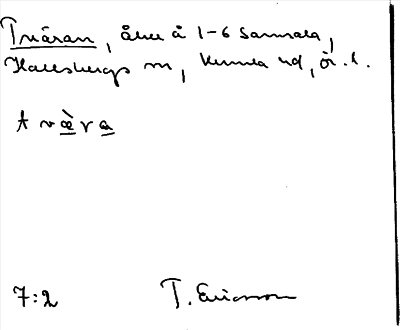 Triäran, åker å 1-6 Sannala,
Hallsbergs sn, Kumla hd, ör. l.
t r æ̀ r a
7:2 T. Ericsson